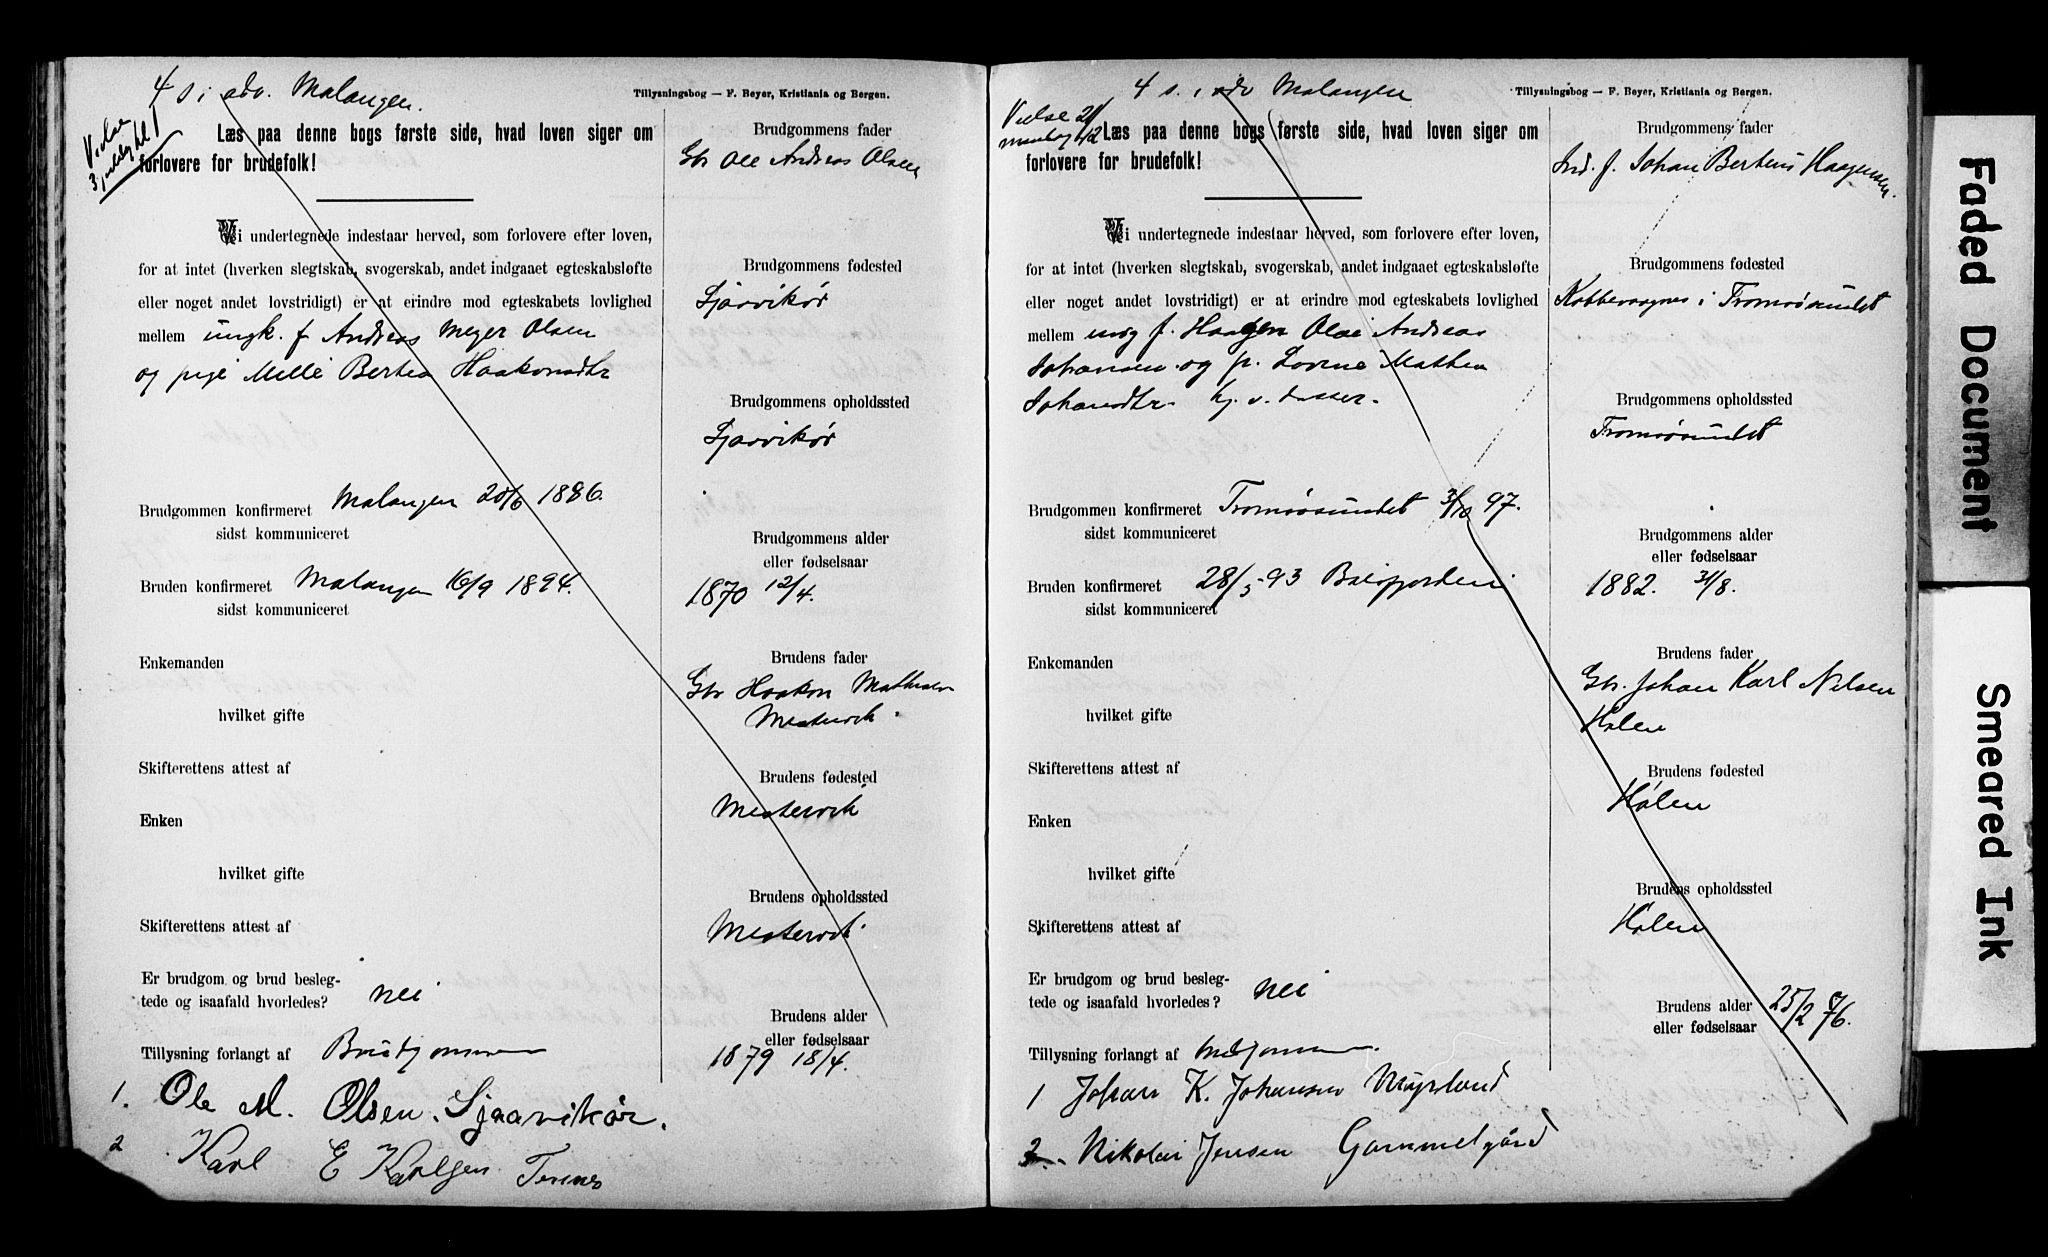 4 s i adv. Malangen.
Tillysningsbog — F. Beyer, Kristiania og Bergen.
Vielse
3 juledg kl 1
Læs paa denne bogs første side, hvad loven siger om
forlovere for brudefolk!
Brudgommens fader
Gbr Ole Andreas Olsen
Vi undertegnede indestaar herved, som forlovere efter loven,
for at intet (hverken slegtskab, svogerskab, andet indgaaet egteskabsløfte
eller noget andet lovstridigt) er at erindre mod egteskabets lovlighed
mellem ungk. f Andreas Meyer Olsen
og pige Melle Bertea Haakonsdtr
Brudgommens fødested
Sjaavikør
Brudgommens opholdssted
Sjaavikør
Brudgommen konfirmeret Malangen 20/6 1886.
sidst kommuniceret
Bruden konfirmeret Malangen 16/9 1894.
sidst kommuniceret
Brudgommens alder
eller fødselsaar
1870 12/4.
Enkemanden
hvilket gifte
Skifterettens attest af
Enken
hvilket gifte
Skifterettens attest af
Brudens fader
Gbr Haakon Mathisen
Mestervik
Brudens fødested
Mestervik
Brudens opholdssted
Mestervik
Er brudgom og brud besleg-
tede og isaafald hvorledes? nei
Tillysning forlangt af Brudgommen
Brudens alder
eller fødselsaar
1879 18/4.
1. Ole M. Olsen. Sjaavikør.
2 Karl E Karlsen Tennes
4 s. i adv Malangen
Tillysningsbog — F. Beyer, Kristiania og Bergen.
Vielse 21/12
mandag
Læs paa denne bogs første side, hvad loven siger om
forlovere for brudefolk!
Brudgommens fader
Ind. f. Johan Berteus Haagensen.
Vi undertegnede indestaar herved, som forlovere efter loven,
for at intet (hverken slegtskab, svogerskab, andet indgaaet egteskabsløfte
eller noget andet lovstridigt) er at erindre mod egteskabets lovlighed
mellem ung f. Haagen Olai Andreas
Johansen og p. Lovine Mathea
Johansdtr.
Brudgommens fødested
Kobbevaagnes i Tromsøsundet
Brudgommens opholdssted
Tromsøsundet
Brudgommen konfirmeret Tromsøsundet 3/10 97.
sidst kommuniceret
Bruden konfirmeret 28/5 93 Balsfjorden
sidst kommuniceret
Brudgommens alder
eller fødselsaar
1882. 31/8.
Enkemanden
hvilket gifte
Skifterettens attest af
Enken
hvilket gifte
Skifterettens attest af
Brudens fader
Gbr. Johan Karl Nilsen
Holen
Brudens fødested
Holen
Brudens opholdssted
Holen
Er brudgom og brud besleg-
tede og isaafald hvorledes? nei
Tillysning forlangt af brudgommen.
Brudens alder
eller fødselsaar
25/2 76.
1 Johan K. Johansen Myrlund
2. Nikolai Jensen Gammelgård
Faded Document
Smeared Ink